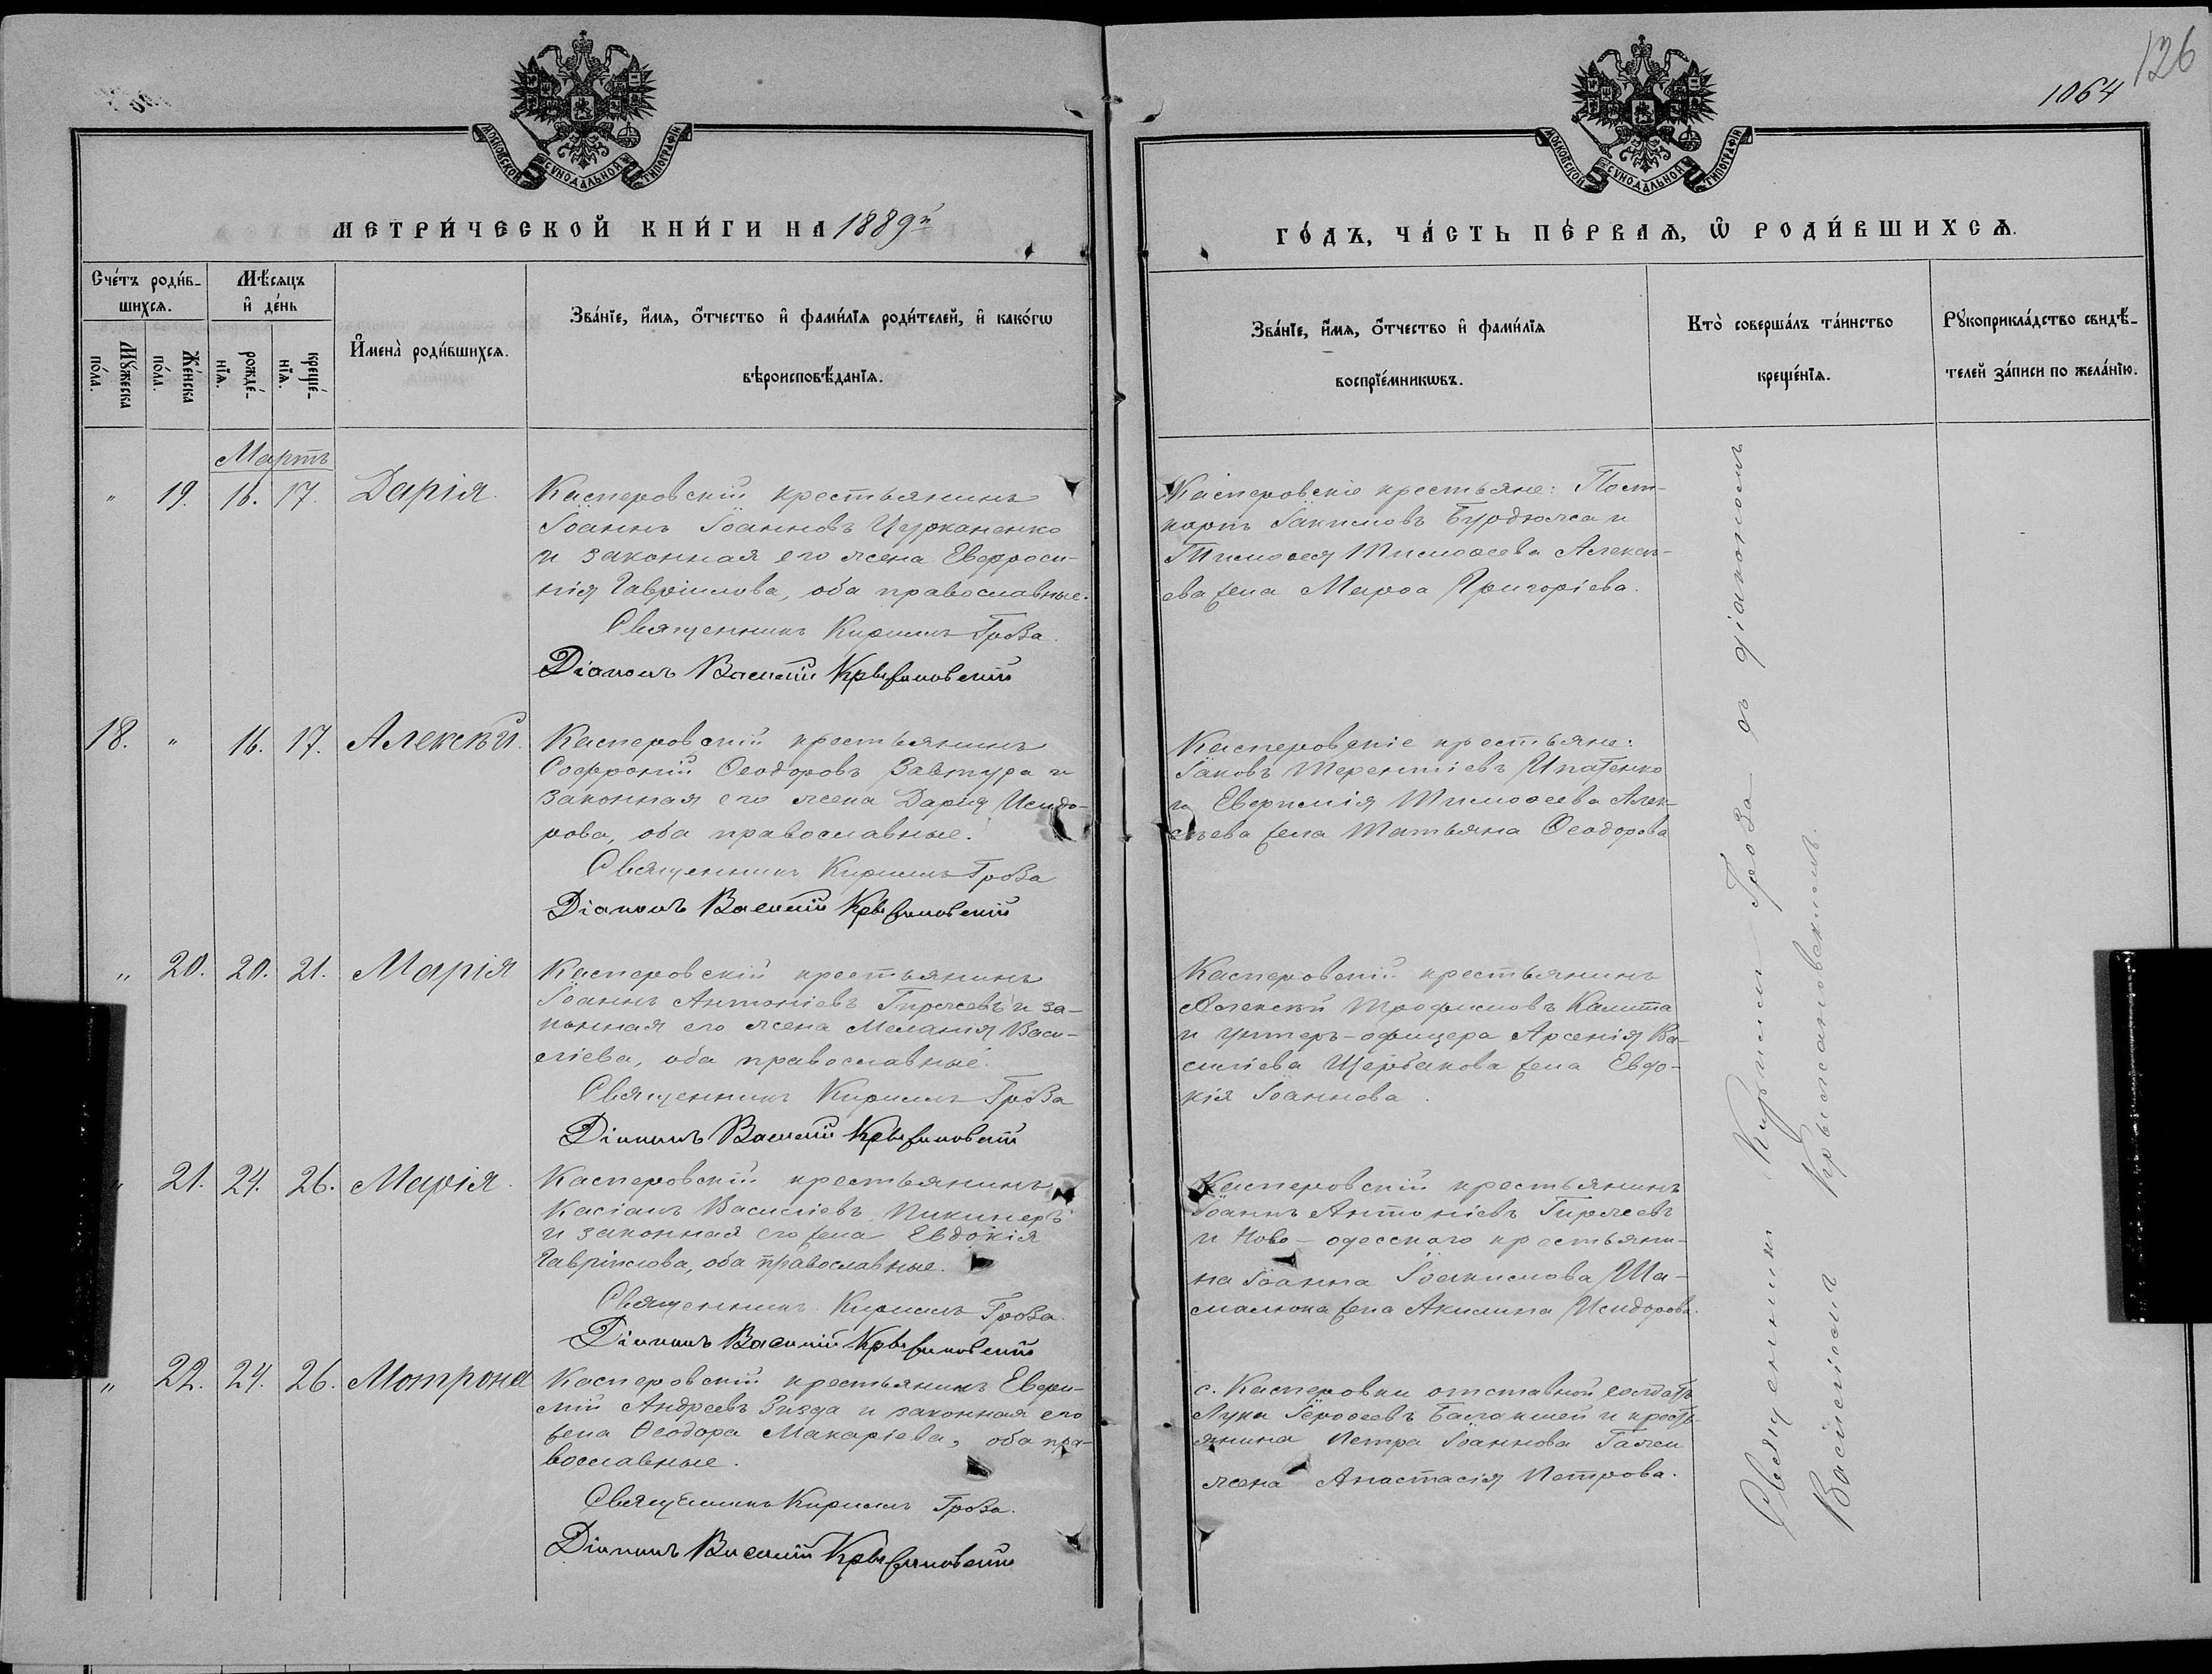 126
1064
МОСКОВСКОЙ СѴНОДАЛЬНОЙ ТИПОГРАФІИ
МОСКОВСКОЙ СѴНОДАЛЬНОЙ ТИПОГРАФІИ
МЕТРИ́ЧЕСКОЙ КНИ́ГИ НА 1889й
ГО́ДЪ, ЧА́СТЬ ПЕ́РВАѦ, Ѡ РОДИ́ВШИХСѦ.
Сче́тъ роди́вшихсѧ.
Мꙋ́жеска по́ла.
Же́нска по́ла.
Мѣ́сѧцъ и де́нь
рожде́нїѧ.
креще́нїѧ.
Имена̀ роди́вшихсѧ.
Зва́нїе, и́мѧ, о́тчество и фами́лїѧ роди́телей, и како́гѡ
вѣроисповѣ́данїѧ.
Зва́нїе, и́мѧ, о́тчество и фами́лїѧ
воспрїе́мникѡвъ.
Кто̀ соверша́лъ та́инство
креще́нїѧ.
Рꙋкоприкла́дство свидѣ́-
телей за́писи по жела́нїю.
Мартъ
" 19. 16. 17. Дарія.
Касперовскій крестьянинъ
Іоаннъ Іоанновъ Цурканенко
и законная его жена Евфроси-
нія Гавріилова, оба православные.
Священникъ Кириллъ Гроза.
Діаконъ Василій Крыжановскій
Касперовскіе крестьяне:
Іакимовъ Бурдюжа и
Тимоѳея Тимоѳеева Алексѣ-
ева жена Марѳа Григоріева.
18. " 16. 17. Алексѣй.
Касперовскій крестьянинъ
Софроній Ѳеодоровъ Завтура и
законная его жена Дарія Исидо-
рова, оба православные.
Священникъ Кириллъ Гроза
Діаконъ Василій Крыжановскій
Касперовскіе крестьяне:
Іаковъ Терентіевъ Ипатенко
и Евфимія Тимоѳеева Алек-
сѣева жена Татьяна Ѳеодорова
" 20. 20. 21. Марія
Касперовскій крестьянинъ
Іоаннъ Антоніевъ Гиржевъ и за-
конная его жена Меланія Васи-
ліева, оба православные.
Священникъ Кириллъ Гроза
Діаконъ Василій Крыжановскій
Касперовскій крестьянинъ
Алексѣй Трофимовъ Калита
и унтеръ-офицера Арсенія Ва-
силіева Щербакова жена Евдо-
кія Іоаннова.
" 21. 24. 26. Марія.
Касперовскій крестьянинъ
Касіанъ Василіевъ Пикинеръ
и законная его жена Евдокія
Гавріилова, оба православные.
Священникъ Кириллъ Гроза.
Діаконъ Василій Крыжановскій
Касперовскій крестьянинъ
Іоаннъ Антоніевъ Гиржевъ
и Ново-одесскаго крестьяни-
на Іоанна Іоакимова
жена Акилина Исидорова.
" 22. 24. 26. Мотрона
Касперовскій крестьянинъ Евфи-
мій Андреевъ и законная его
жена Ѳеодора Макаріева, оба пра-
вославные.
Священникъ Кириллъ Гроза.
Діаконъ Василій Крыжановскій
с. Касперовки отставной солдатъ
Лука Іероѳеевъ и кресть-
янина Петра Іоаннова
жена Анастасія Петрова.
Священникъ Кириллъ Гроза съ діакономъ
Василіемъ Крыжановскимъ.